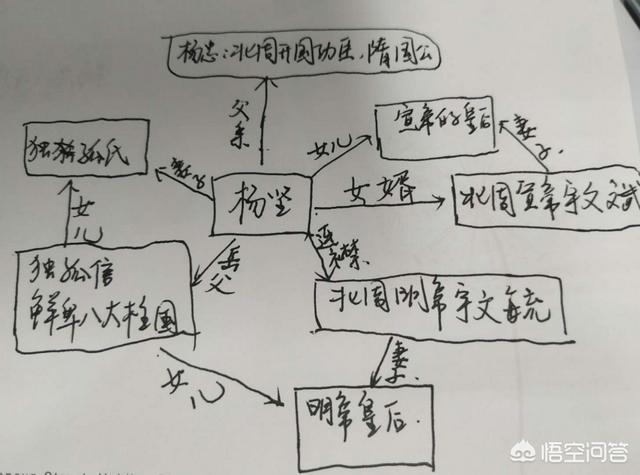 杨志:北周开国功臣,隋国公
父亲
宣帝的皇后
妻子
女儿
独孤氏
妻子
杨坚
女婿
北周宣帝宇文
女儿
岳父
连襟
独孤信
鲜卑八大柱国
北周明帝宇文毓
女儿
妻
明帝皇后.
悟空问答